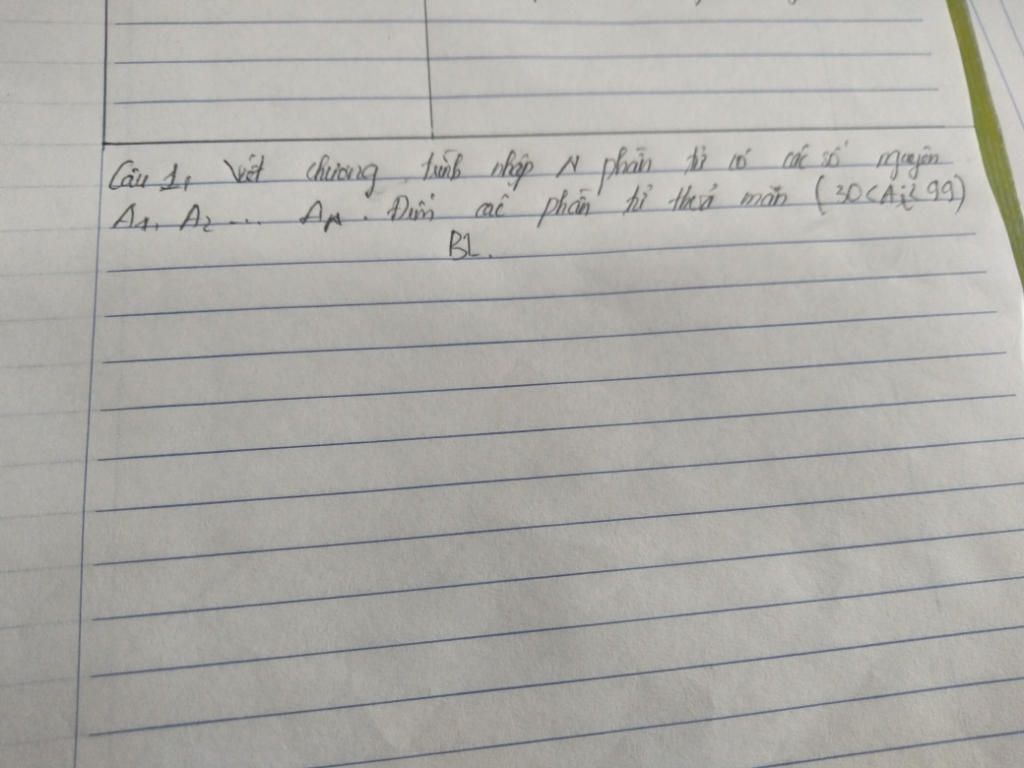 Câu 1, Viết chương trình nhập N phần tử có các số nguyên
A1, A2 ... AN. Đếm các phần tử thoả mãn (30<Ai<99)
BL.